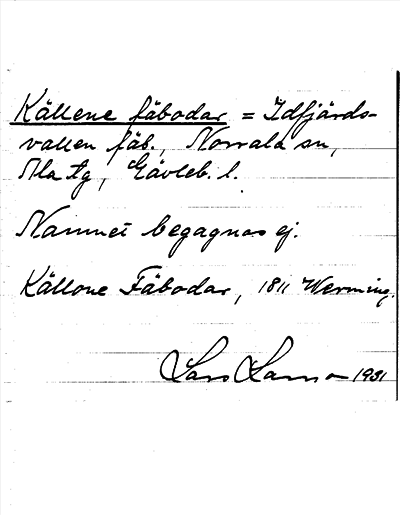 Källene fäbodar = Idfjärds-
vallen fäb., Norrala sn,
Ala tg, Gävleb. l.
Namnet begagnas ej.
Källone Fäbodar, 1811 Werming.
Lars 1931